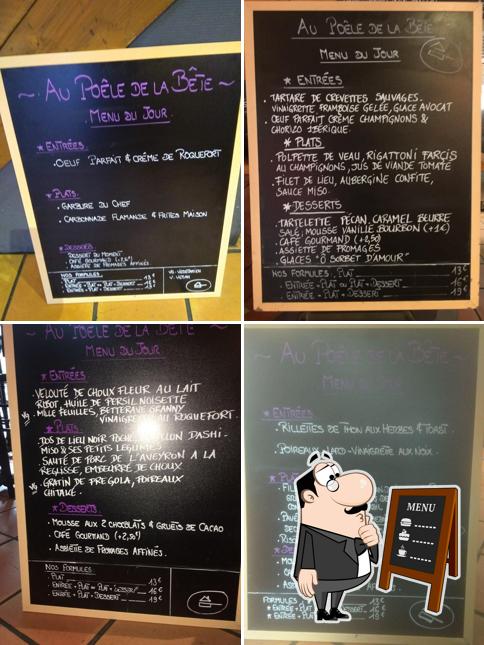 ~ Au Poêle de la Bête ~
Menu du Jour
★ Entrées
. Oeuf Parfait & Crème de Roquefort
★ Plats
. Garbure du Chef
. Carbonnade Flamande & Frites Maison
★ Desserts
. Dessert du Moment
. Café Gourmand (+2,50)
. Assiette de Fromages Affinés.
Nos Formules:
. Plat 13€
. Entrée + Plat ou Plat + Dessert 16€
. Entrée + Plat + Dessert 19€
VG: Végétarien
V: Vegan
Au Poêle de la Bête
Menu du Jour
★ Entrées
. Tartare de Crevettes Sauvages.
Vinaigrette Framboise Gelée, Glace Avocat
. Oeuf Parfait Crème Champignons &
Chorizo Ibérique.
★ Plats
. Polpette de Veau, Rigattoni Farçis
au Champignons, Jus de Viande Tomaté
. Filet de Lieu, Aubergine Confite,
Sauce Miso
★ Desserts
. Tartelette Pécan, Caramel Beurre
Salé, Mousse Vanille Bourbon (+1€)
. Café Gourmand (+2,50)
. Assiette de Fromages
. Glaces "Ô Sorbet d'Amour"
Nos Formules: Plat 13€
. Entrée + Plat ou Plat + Dessert 16€
. Entrée + Plat + Dessert 19€
Au Poêle de la Bête
Menu du Jour
★ Entrées
. Velouté de Choux Fleur au Lait
Ribot, Huile de Persil Noisette
Vg . Mille Feuilles, Betterave Granny
Vinaigrette au Roquefort.
★ Plats
. Dos de Lieu Noir Poché, Bouillon Dashi-
Miso & ses Petits Légumes
. Sauté de Porc de l'Aveyron a la
Réglisse, Embeurrée de Choux
Vg . Gratin de Pregola, Poireaux
Chitaké.
★ Desserts
. Mousse aux 2 Chocolats & Gruets de Cacao
. Café Gourmand (+2,50)
. Assiette de Fromages Affinés.
Nos Formules:
. Plat 13€
. Entrée + Plat ou Plat + Dessert 16€
. Entrée + Plat + Dessert 19€
~ Au Poêle de la Bête ~
Menu du Jour
★ Entrées
. Rillettes de Thon aux Herbes & Toast
. Poireaux Lard - Vinaigrette aux Noix.
MENU
Formules: Plat 13€
★ Entrée + Plat 16€
★ Entrée + Plat + Dessert 19€